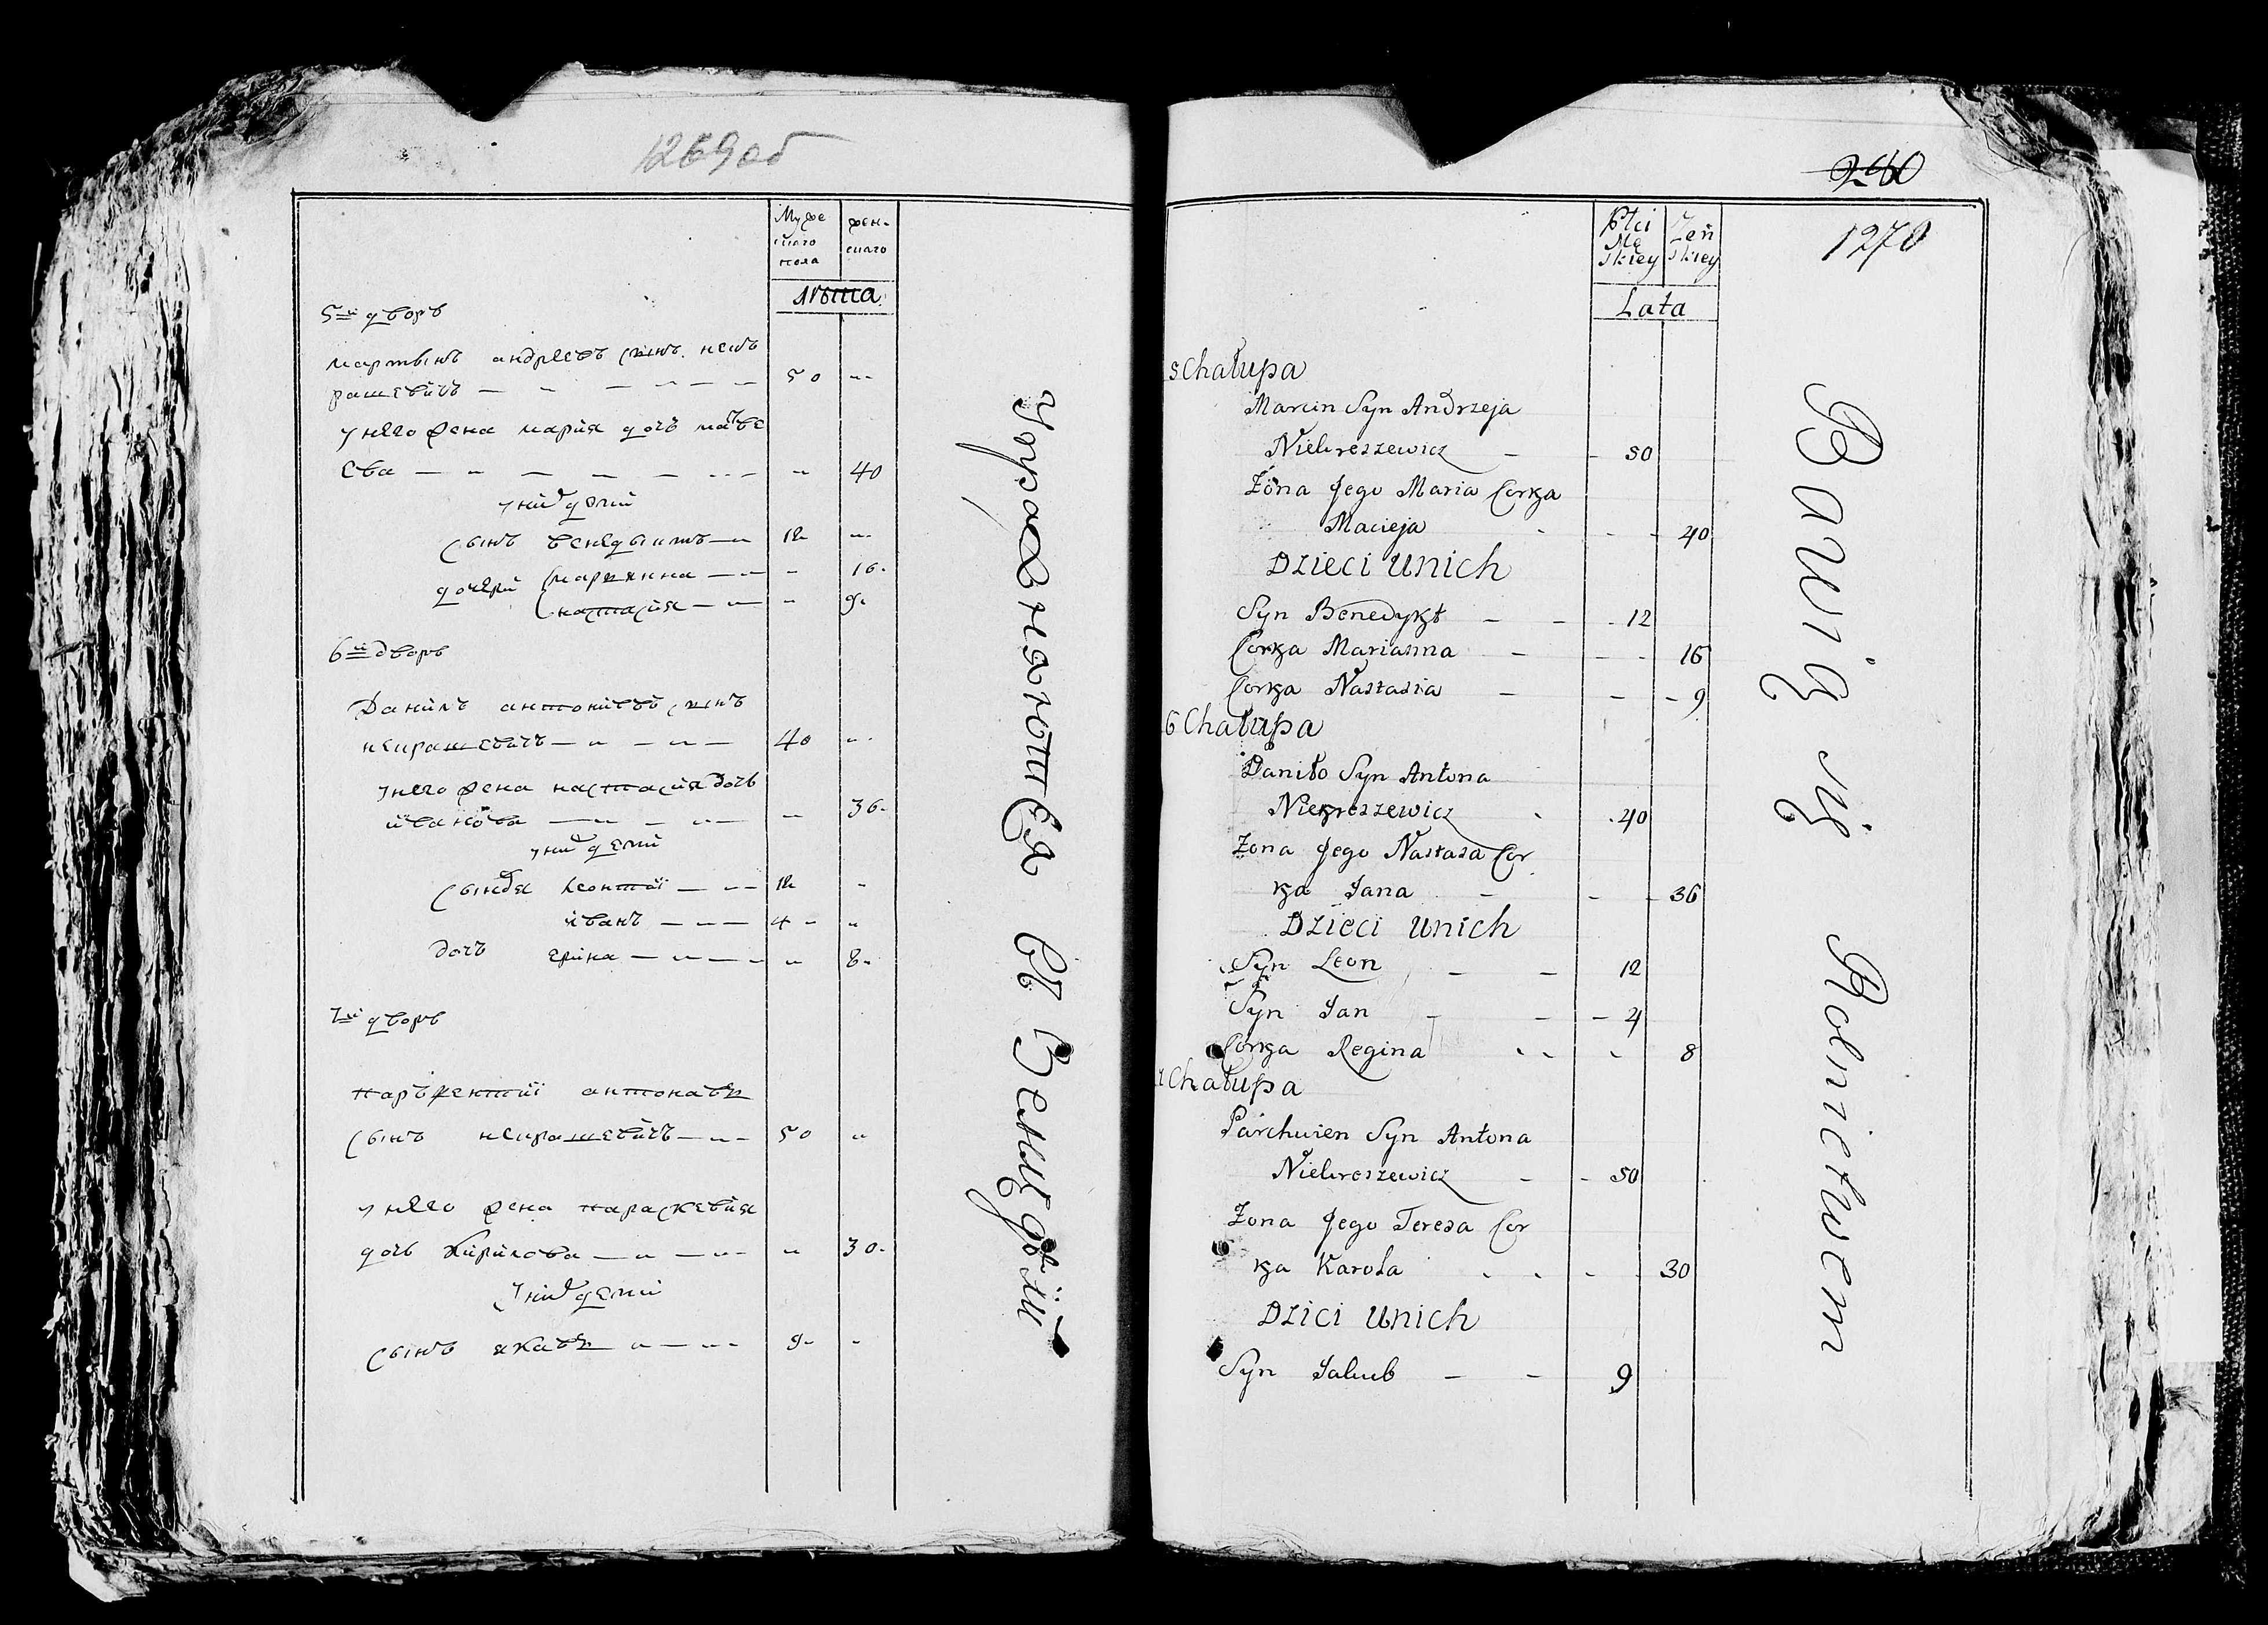 1269об
Муже
скаго
пола
жен-
скаго
лѣта
5й дворъ
мартынъ андреевъ сынъ нек
рашевичъ — 50
у него жена марія дочь матве
ева — 40
у них дети
сынъ бенедыктъ — 12
дочери марьянна — 16
настасія — 9
6й дворъ
Данилъ антоновъ сынъ
некрашевичъ — 40
у него жена настасія дочь
иванова — 36
у них дети
сыновья леонтій — 12
иванъ — 4
дочь ерина — 8
7й дворъ
парфентій антоновъ
сынъ некрашевичъ — 50
у него жена параскевія
дочь кирилова — 30
у них дети
сынъ яковъ — 9
Упражняются въ Земледѣліи
240
1270
Płci
Mę
skiey
Zeń
skiey
Lata
5 Chałupa
Marcin Syn Andrzeja
Niekreszewicz — 50
Żona Jego Maria Corka
Macieja - 40
Dzieci unich
Syn Benedykt — 12
Corka Marianna — 16
Corka Nastasia — 9
6 Chałupa
Daniło Syn Antona
Niekreszewicz 40
Zona Jego Nastasa Cor
ka Jana — 36
Dzieci unich
Syn Leon — 12
Syn Jan — 4
Corka Regina 8
Chałupa
Parchwien Syn Antona
Niekreszewicz — 50
Zona Jego Teresa Cor
ka Karola 30
Dzici unich
Syn Jakub — 9
Bawią się Rolnictwem